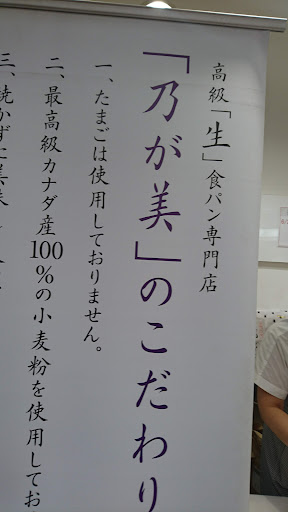 高級「生」食パン専門店
「乃が美」のこだわり
一、たまごは使用しておりません。
二、最高級カナダ産100%の小麦粉を使用してお
三、焼かずに美味し